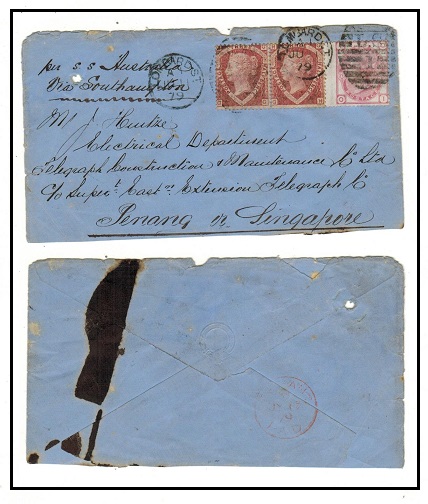 per s.s. Australia
Via Southampton
LOMBARD ST
79
LOMBARD ST
79
M J Hentze
Electrical Department
Telegraph Construction & Maintenance Co Ltd
C/o Supert. East'n Extension Telegraph Co
Penang or Singapore